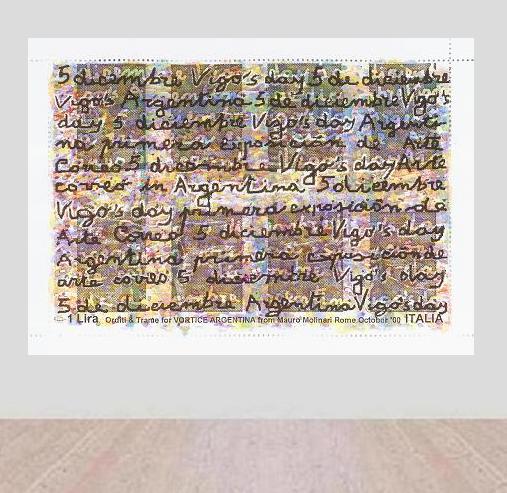 5 diciembre Vigo's day 5 de diciembre
Vigo's Argentina 5 de diciembre Vigo's
day 5 diciembre Vigo's day Argenti
na primera exposición de Arte
Correo 5 diciembre Vigo's day Arte
correo in Argentina 5 diciembre
Vigo's day primera exposición de
Arte Correo 5 diciembre Vigo's day
Argentina primera Exposición de
arte correo 5 diciembre Vigo's day
5 de diciembre Argentina Vigo's day
1 Lira Orditi & Trame for VORTICE ARGENTINA from Mauro Molinari Rome October '00 ITALIA